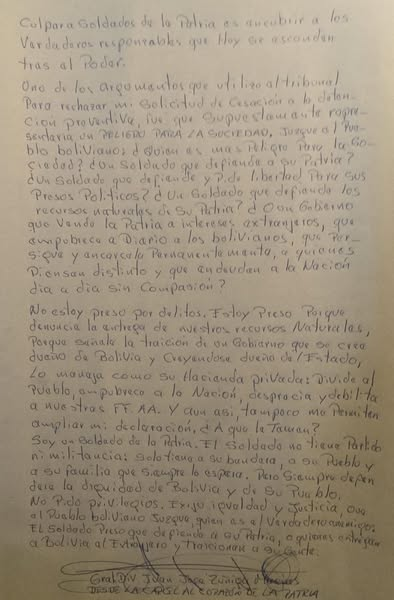 Culpar a Soldados de la Patria es encubrir a los
Verdaderos responsables que Hoy se esconden
tras al Poder.
Uno de los Argumentos que utilizo al tribunal
Para rechazar mi Solicitud de Cesación a la deten-
ción preventiva, fue que Supuestamente repre-
sentaría un PELIGRO PARA LA SOCIEDAD, Juzgue el Pue-
blo boliviano; ¿Quien es mas Peligro Para la So-
ciedad? ¿Un Soldado que defiende a su Patria?
¿Un Soldado que defiende y Pide libertad Para sus
Presos Políticos? ¿Un Soldado que defiende los
recursos naturales de Su Patria? ¿O un Gobierno
que Vende la Patria a intereses extranjeros, que
empobrece a Diario a los bolivianos, que Per-
sigue y encarcela Permanentemente, a quienes
Piensan distinto y que endeudan a la Nación
dia a dia sin Compasión?
No estoy preso por delitos. Estoy Preso Porque
denuncie la entrega de nuestros recursos Naturales,
Porque señale la traición de un Gobierno que se cree
dueño de Bolivia y Creyendose dueño del Estado,
Lo maneja como su Hacienda privada: Divide al
Pueblo, empobrece a la Nación, desprecia y debilita
a nuestras FF.AA. Y aun asi, tampoco me Permiten
ampliar mi declaración, ¿A que le Temen?
Soy un Soldado de la Patria. El Soldado no tiene Partido
ni militancia: Solo tiene a su bandera, a su Pueblo y
a su familia que siempre lo espera. Pero Siempre defen
dere la dignidad de Bolivia y de Su Pueblo.
No Pido privilegios. Exijo igualdad y Justicia, Que
el Pueblo boliviano Juzgue, quien es el Verdadero enemigo:
El Soldado Preso que defiende a su Patria, o quienes entregan
a Bolivia al Extranjero y Traicionan a su Gente.
Gral. Div Juan Jose Zuñiga Macias
DESDE LA CARCEL AL CORAZON DE LA PATRIA